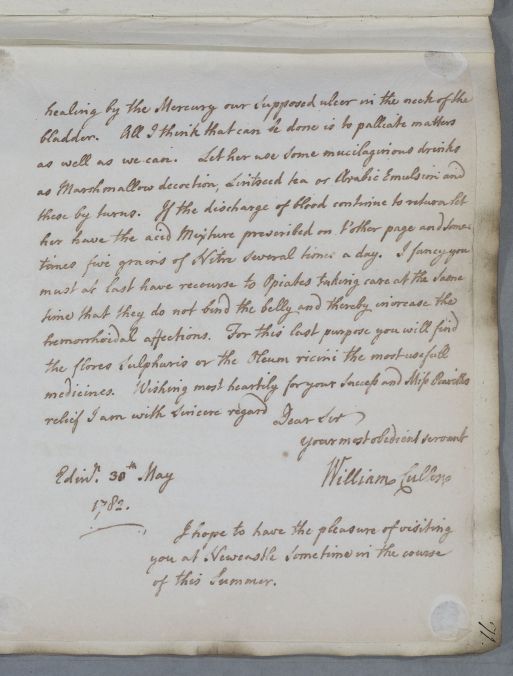 healing by the Mercury our Supposed ulcer in the neck of the
bladder. All I think that can be done is to palliate matters
as well as we can. Let her use Some mucilaginous drinks
as Marshmallow decoction, Lintseed tea or Arabic Emulsion and
these by turns. If the discharge of blood continue to return let
her have the acid Mixture prescribed on t'other page and Some
times five grains of Nitre several times a day. I fancy you
must at last have recourse to Opiates taking care at the Same
time that they do not bind the belly and thereby increase the
hemorrhoidal affections. For this last purpose you will find
the flores Sulphuris or the Oleum ricini the most usefull
medicines. Wishing most heartily for your Success and Miss
relief I am with Sincere regard Dear Sir
your most obedient servant
Edinr. 30th May William Cullen
1782.
I hope to have the pleasure of visiting
you at Newcastle Sometime in the course
of this Summer.